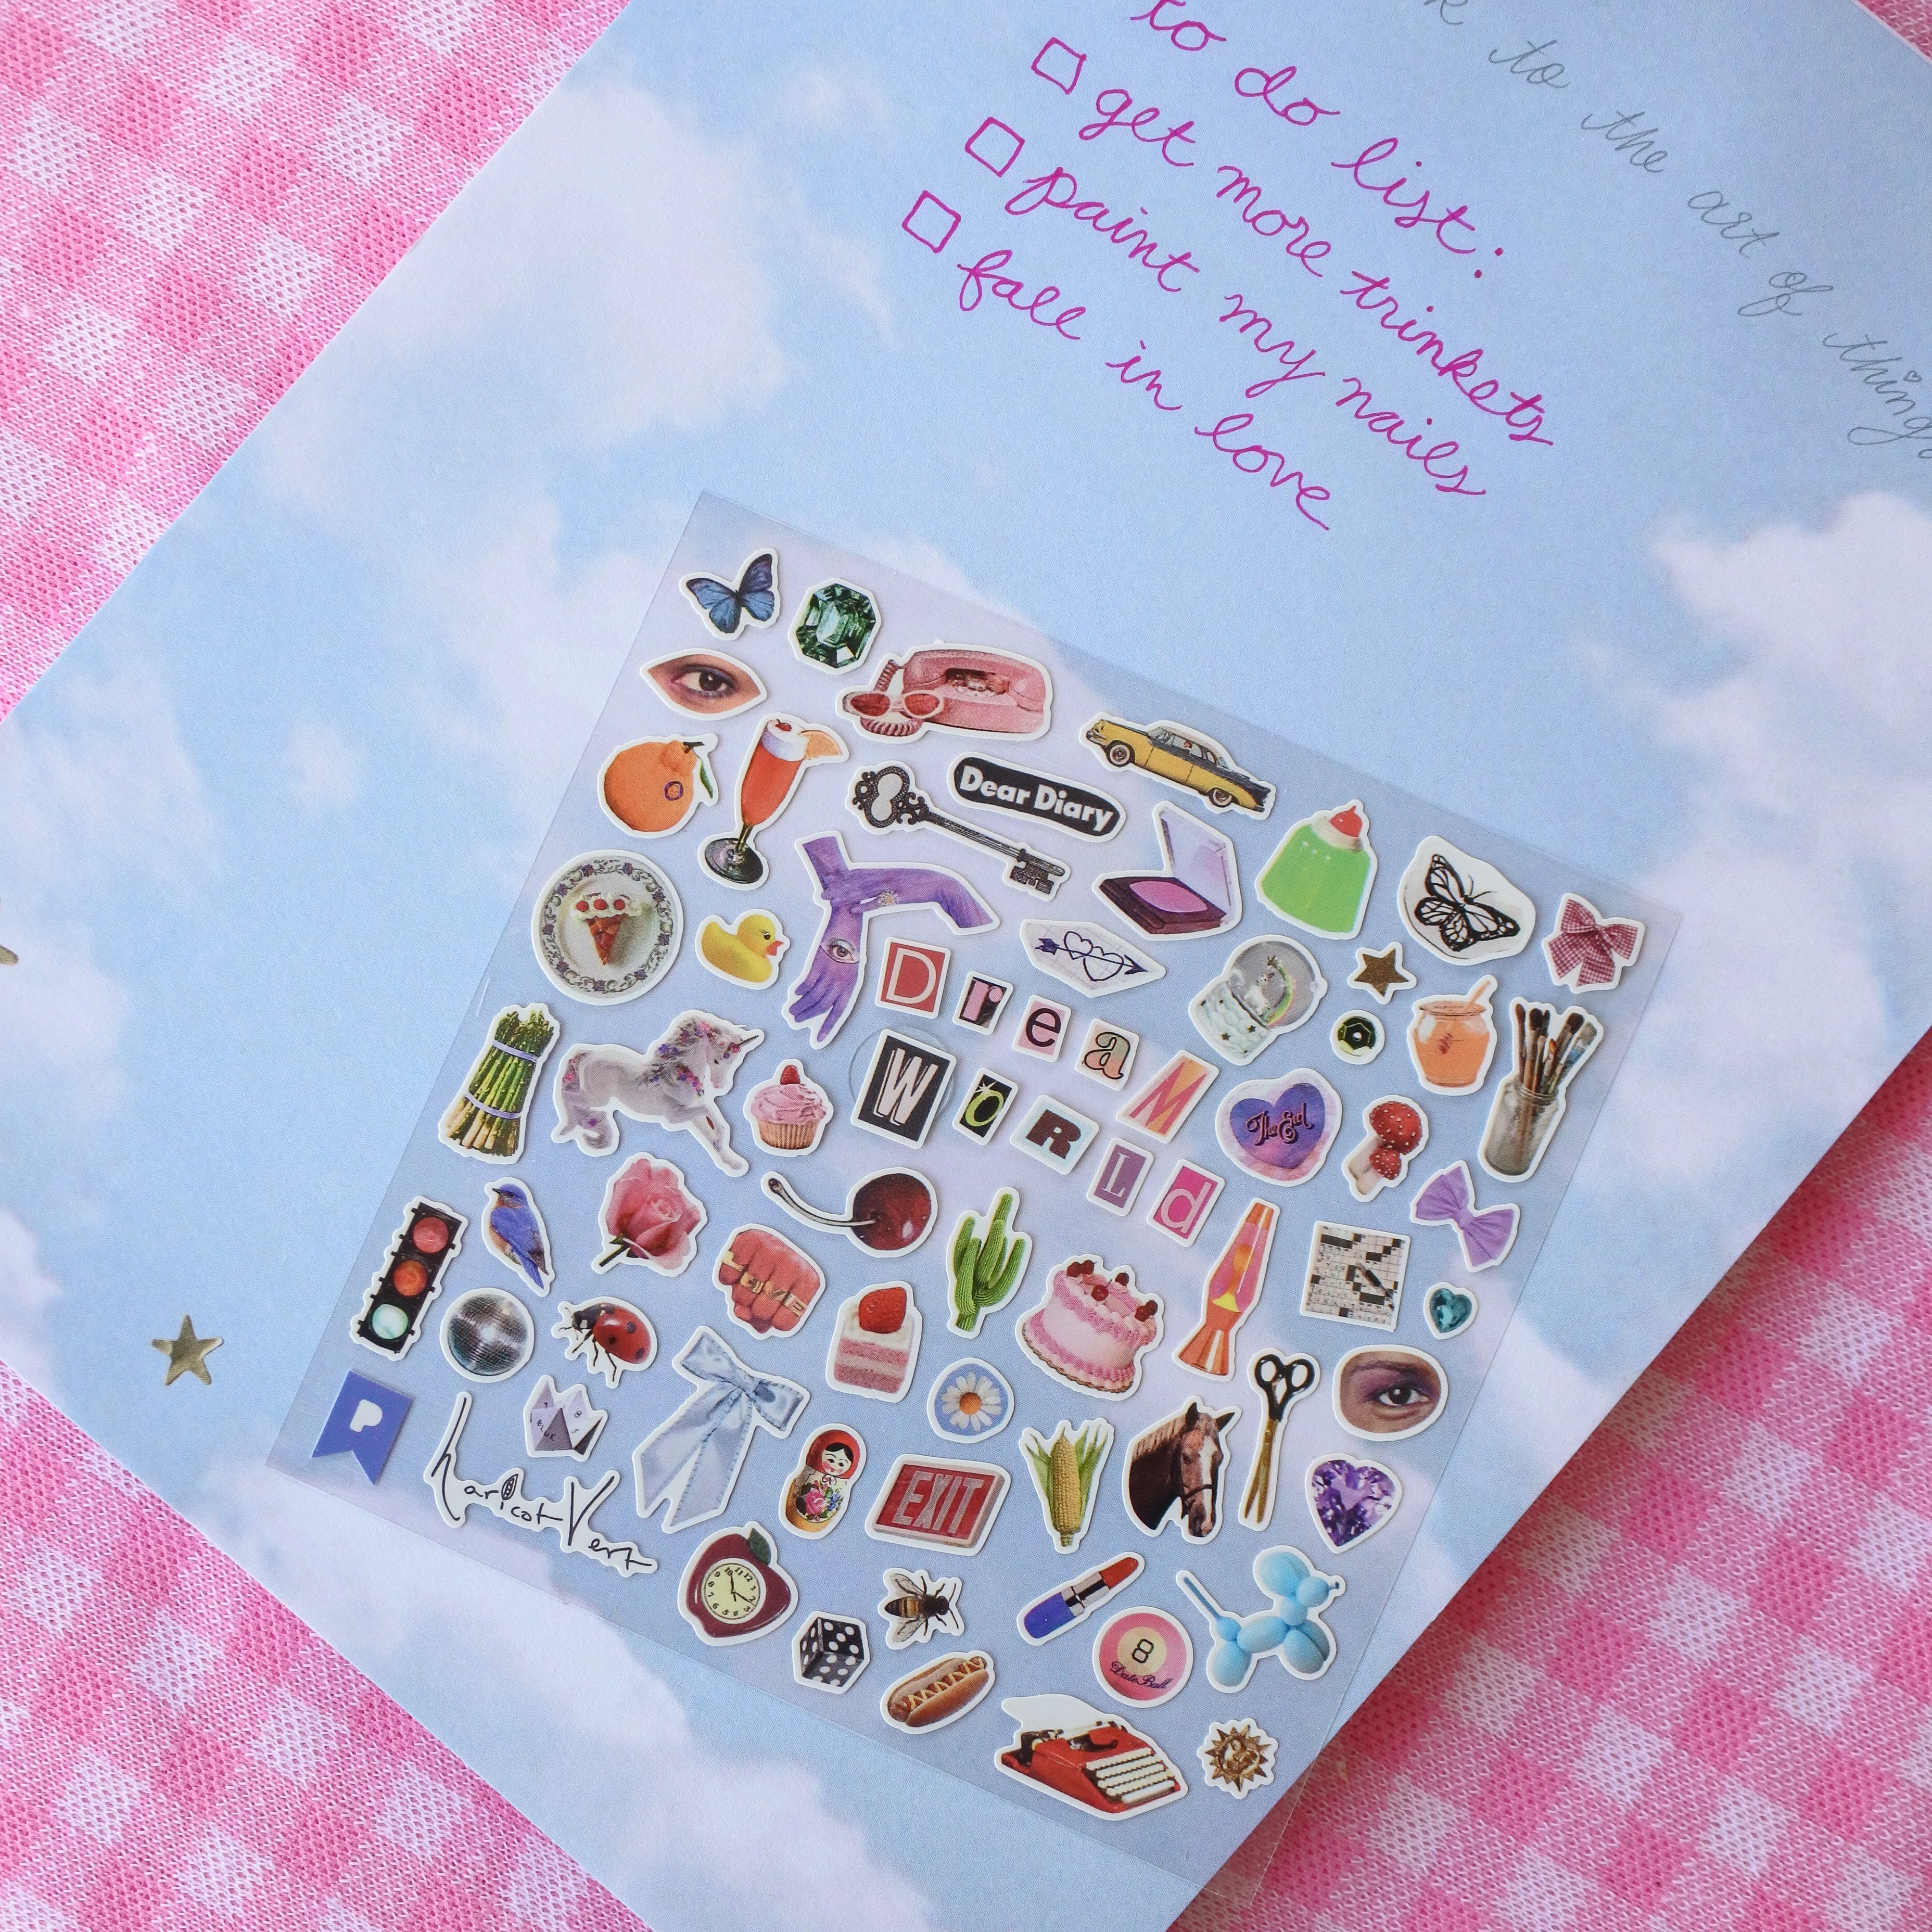 to the art of things
to do list:
get more trinkets
paint my nails
fall in love
Dear Diary
DreaM
WoRLd
The End
LOVE
P
haricot Vert
BLUE
EXIT
8
Date Ball